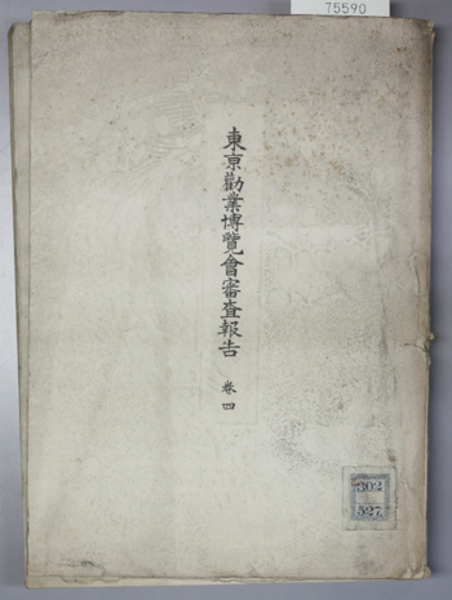 75590
東京勸業博覽會審査報告 卷四
302
527